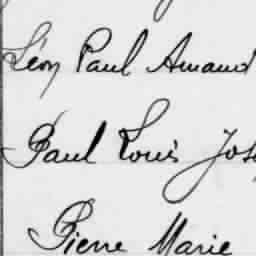 Léon Paul Amand
Paul Louis Jos
Pierre Marie